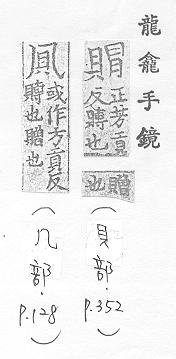 龍龕手鏡
賵
正芳貢
反聘也
贈也
(貝部·P.352)
或作方貢反
聘也贈也
(几部·P.128)